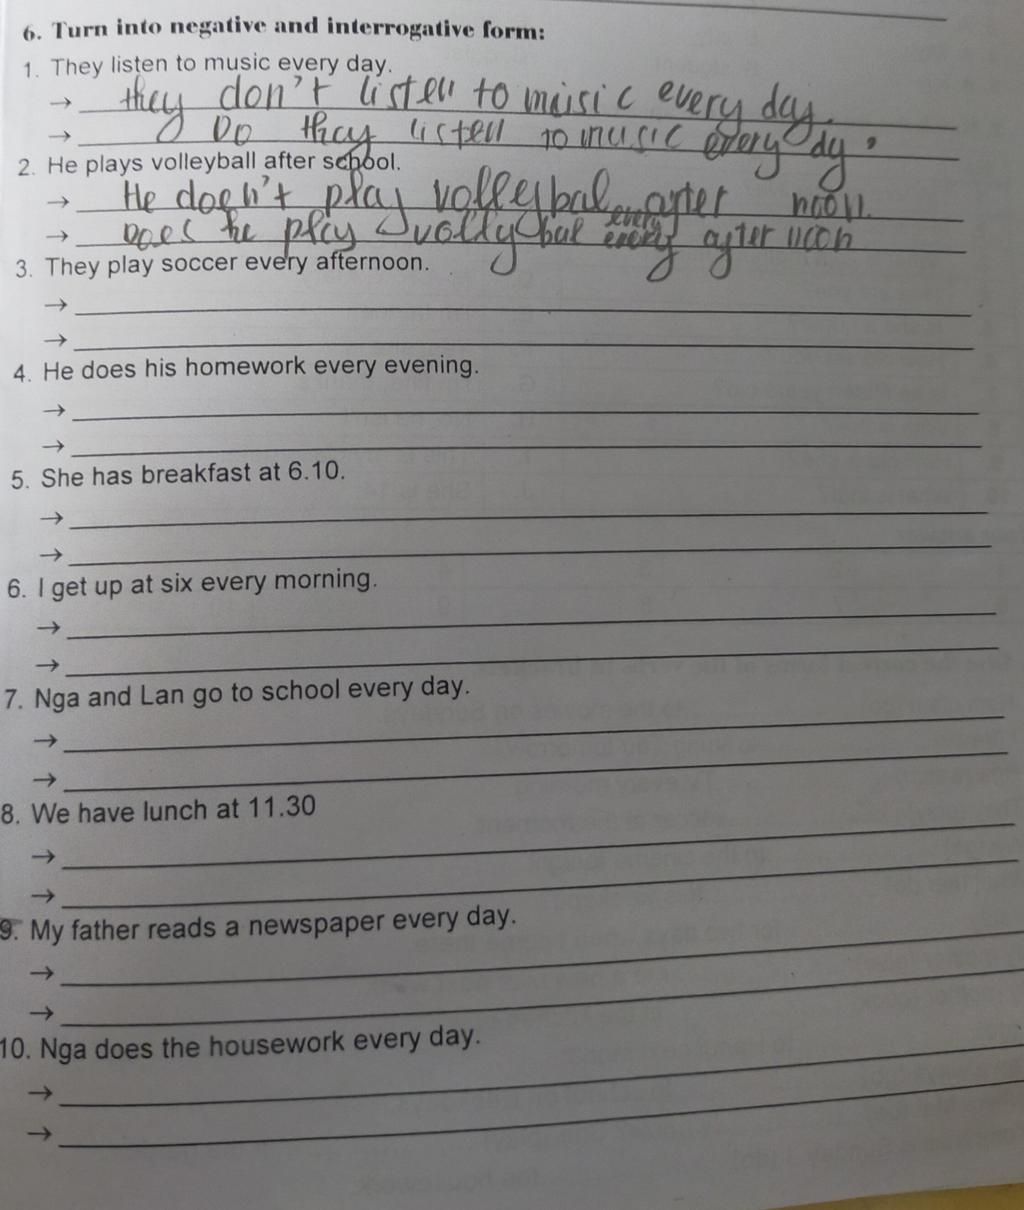 6. Turn into negative and interrogative form:
1. They listen to music every day.
→ they don't listen to music every day.
→ Do they listen to music every dy ?
2. He plays volleyball after school.
→ He doen't play volleybal every after noon.
→ Does he play volly bal every after noon
3. They play soccer every afternoon.
→
→
4. He does his homework every evening.
→
→
5. She has breakfast at 6.10.
→
→
6. I get up at six every morning.
→
→
7. Nga and Lan go to school every day.
→
→
8. We have lunch at 11.30
→
→
9. My father reads a newspaper every day.
→
→
10. Nga does the housework every day.
→
→